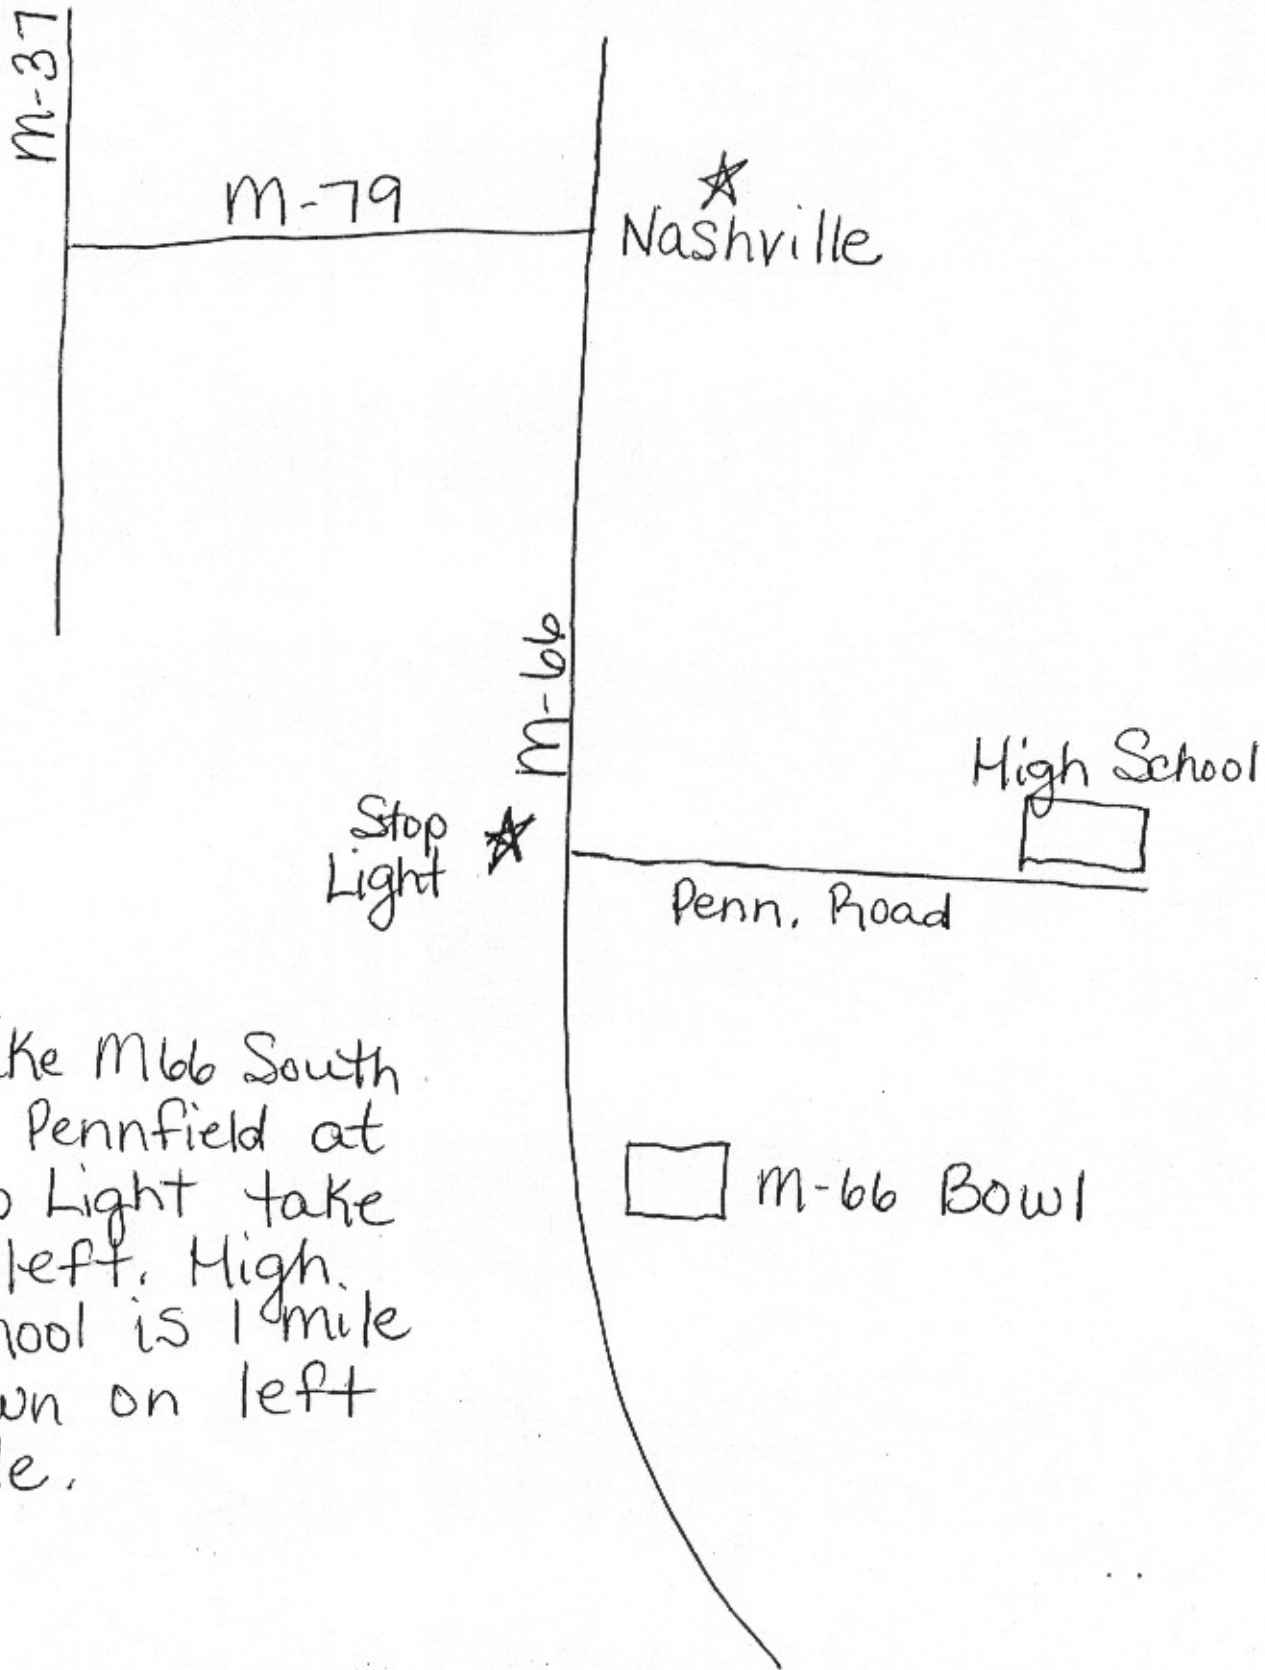 M-37
M-79
Nashville
M-66
High School
Stop
Light
Penn. Road
ke M66 South
Pennfield at
Light take
left. High
hool is 1 mile
wn on left
e.
M-66 Bowl